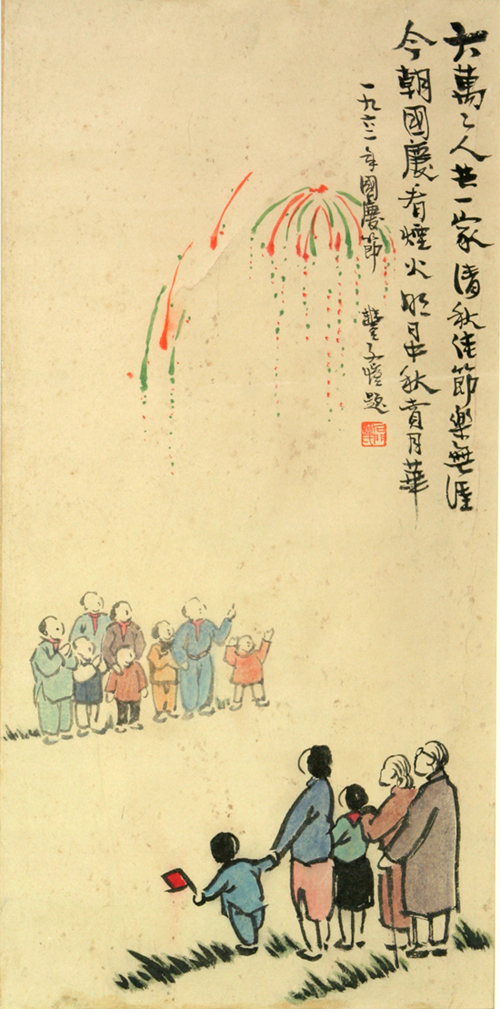 六萬々人共一家清秋佳節樂無涯
今朝國慶看煙火明日中秋賞月華
一九六三年國慶節
豐子愷題